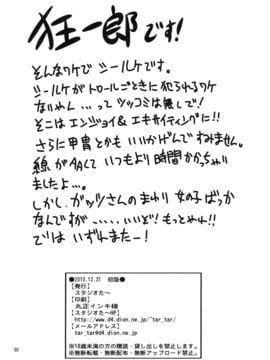 狂一郎です!
そんなワケでシールケです。
シールケがトロールごときに犯られるワケ
ないじゃん...ってツッコミは無しで!
そこはエンジョイ&エキサイティングに!!
さらに甲冑とかもいいかげんですみません。
線がタタくていつもより時間かかっちゃい
ましたよ...。
しかし、ガッツさんのまわり女の子ばっか
なんですが.....いいぞ!もっとやれ!!
ではいずれまたー!
●2010.12.31 初版●
【発行】
スタジオた~
【印刷】
丸正インキ様
【スタジオた~HP】
http://www.d4.dion.ne.jp/~tar_tar/
【メールアドレス】
tar_tar@d4.dion.ne.jp
※18歳未満の方の購読・貸し出しを禁止します。
※無断転載・無断配布・無断アップロード禁止。